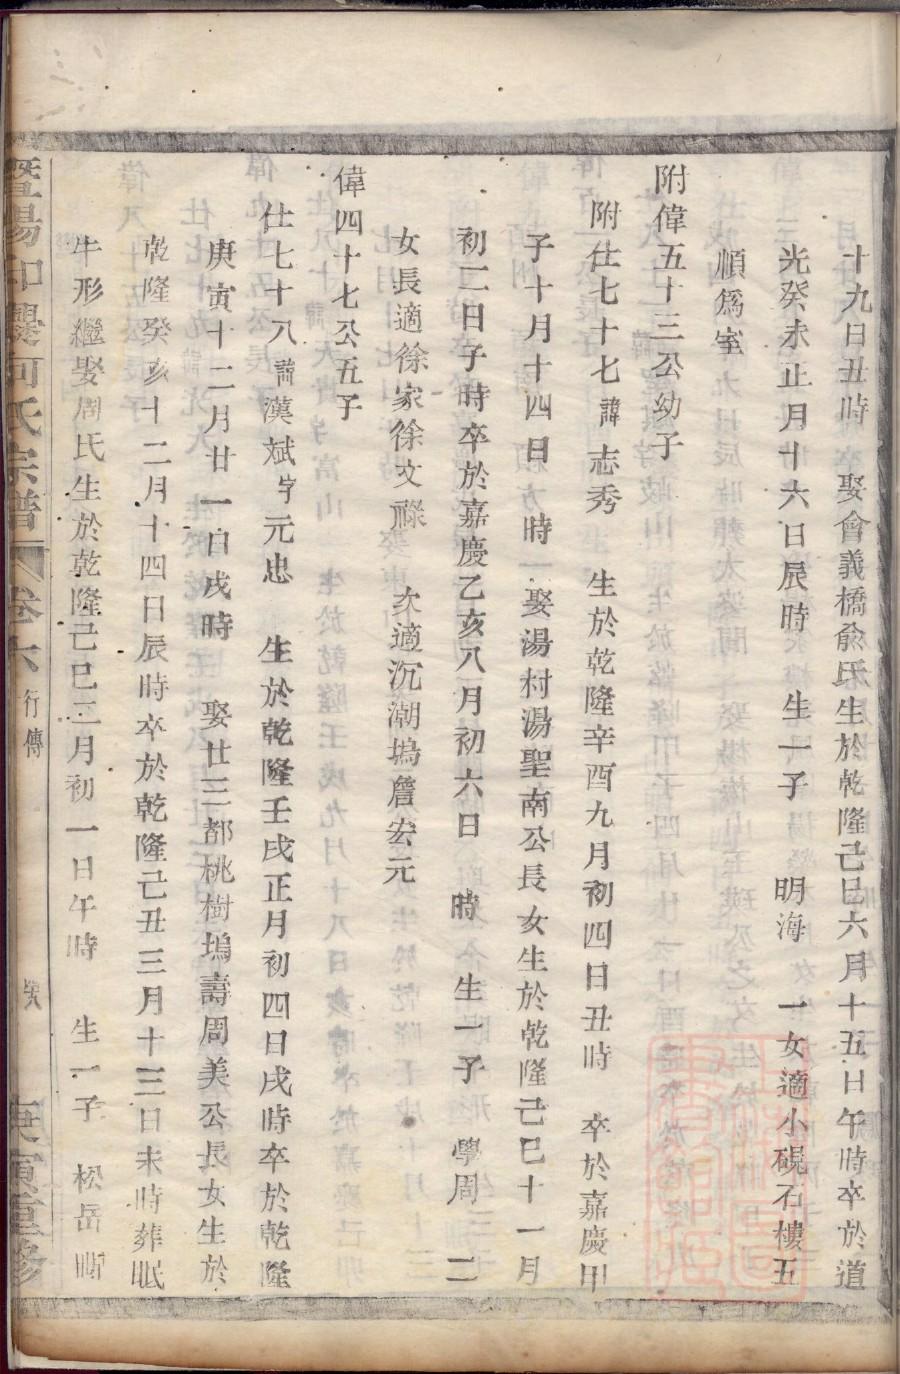 十九日丑時 娶會義橋兪氏生於乾隆己巳六月十五日午時卒於道
光癸未正月十六日辰時 生一子 明海 一女適小硯石樓五
順為室
附偉五十三公幼子
附仕七十七諱志秀 生於乾隆辛酉九月初四日丑時 卒於嘉慶甲
子十月十四日 時 娶湯村湯聖南公長女生於乾隆己巳十一月
初二日子時卒於嘉慶乙亥八月初六日 時 生一子 學周 二
女長適徐家徐文祿 次適沉潮塢詹宏元
偉四十七公五子
仕七十八諱漢斌字元忠 生於乾隆壬戌正月初四日戌時卒於乾隆
庚寅十二月廿一日戌時 娶廿三都桃樹塢壽周美公長女生於
乾隆癸亥十二月十四日辰時卒於乾隆己丑三月十三日未時葬眠
牛形繼娶周氏生於乾隆己巳三月初一日午時 生一子 松岳
暨陽 何氏宗譜 卷六 行傳 庚寅重修